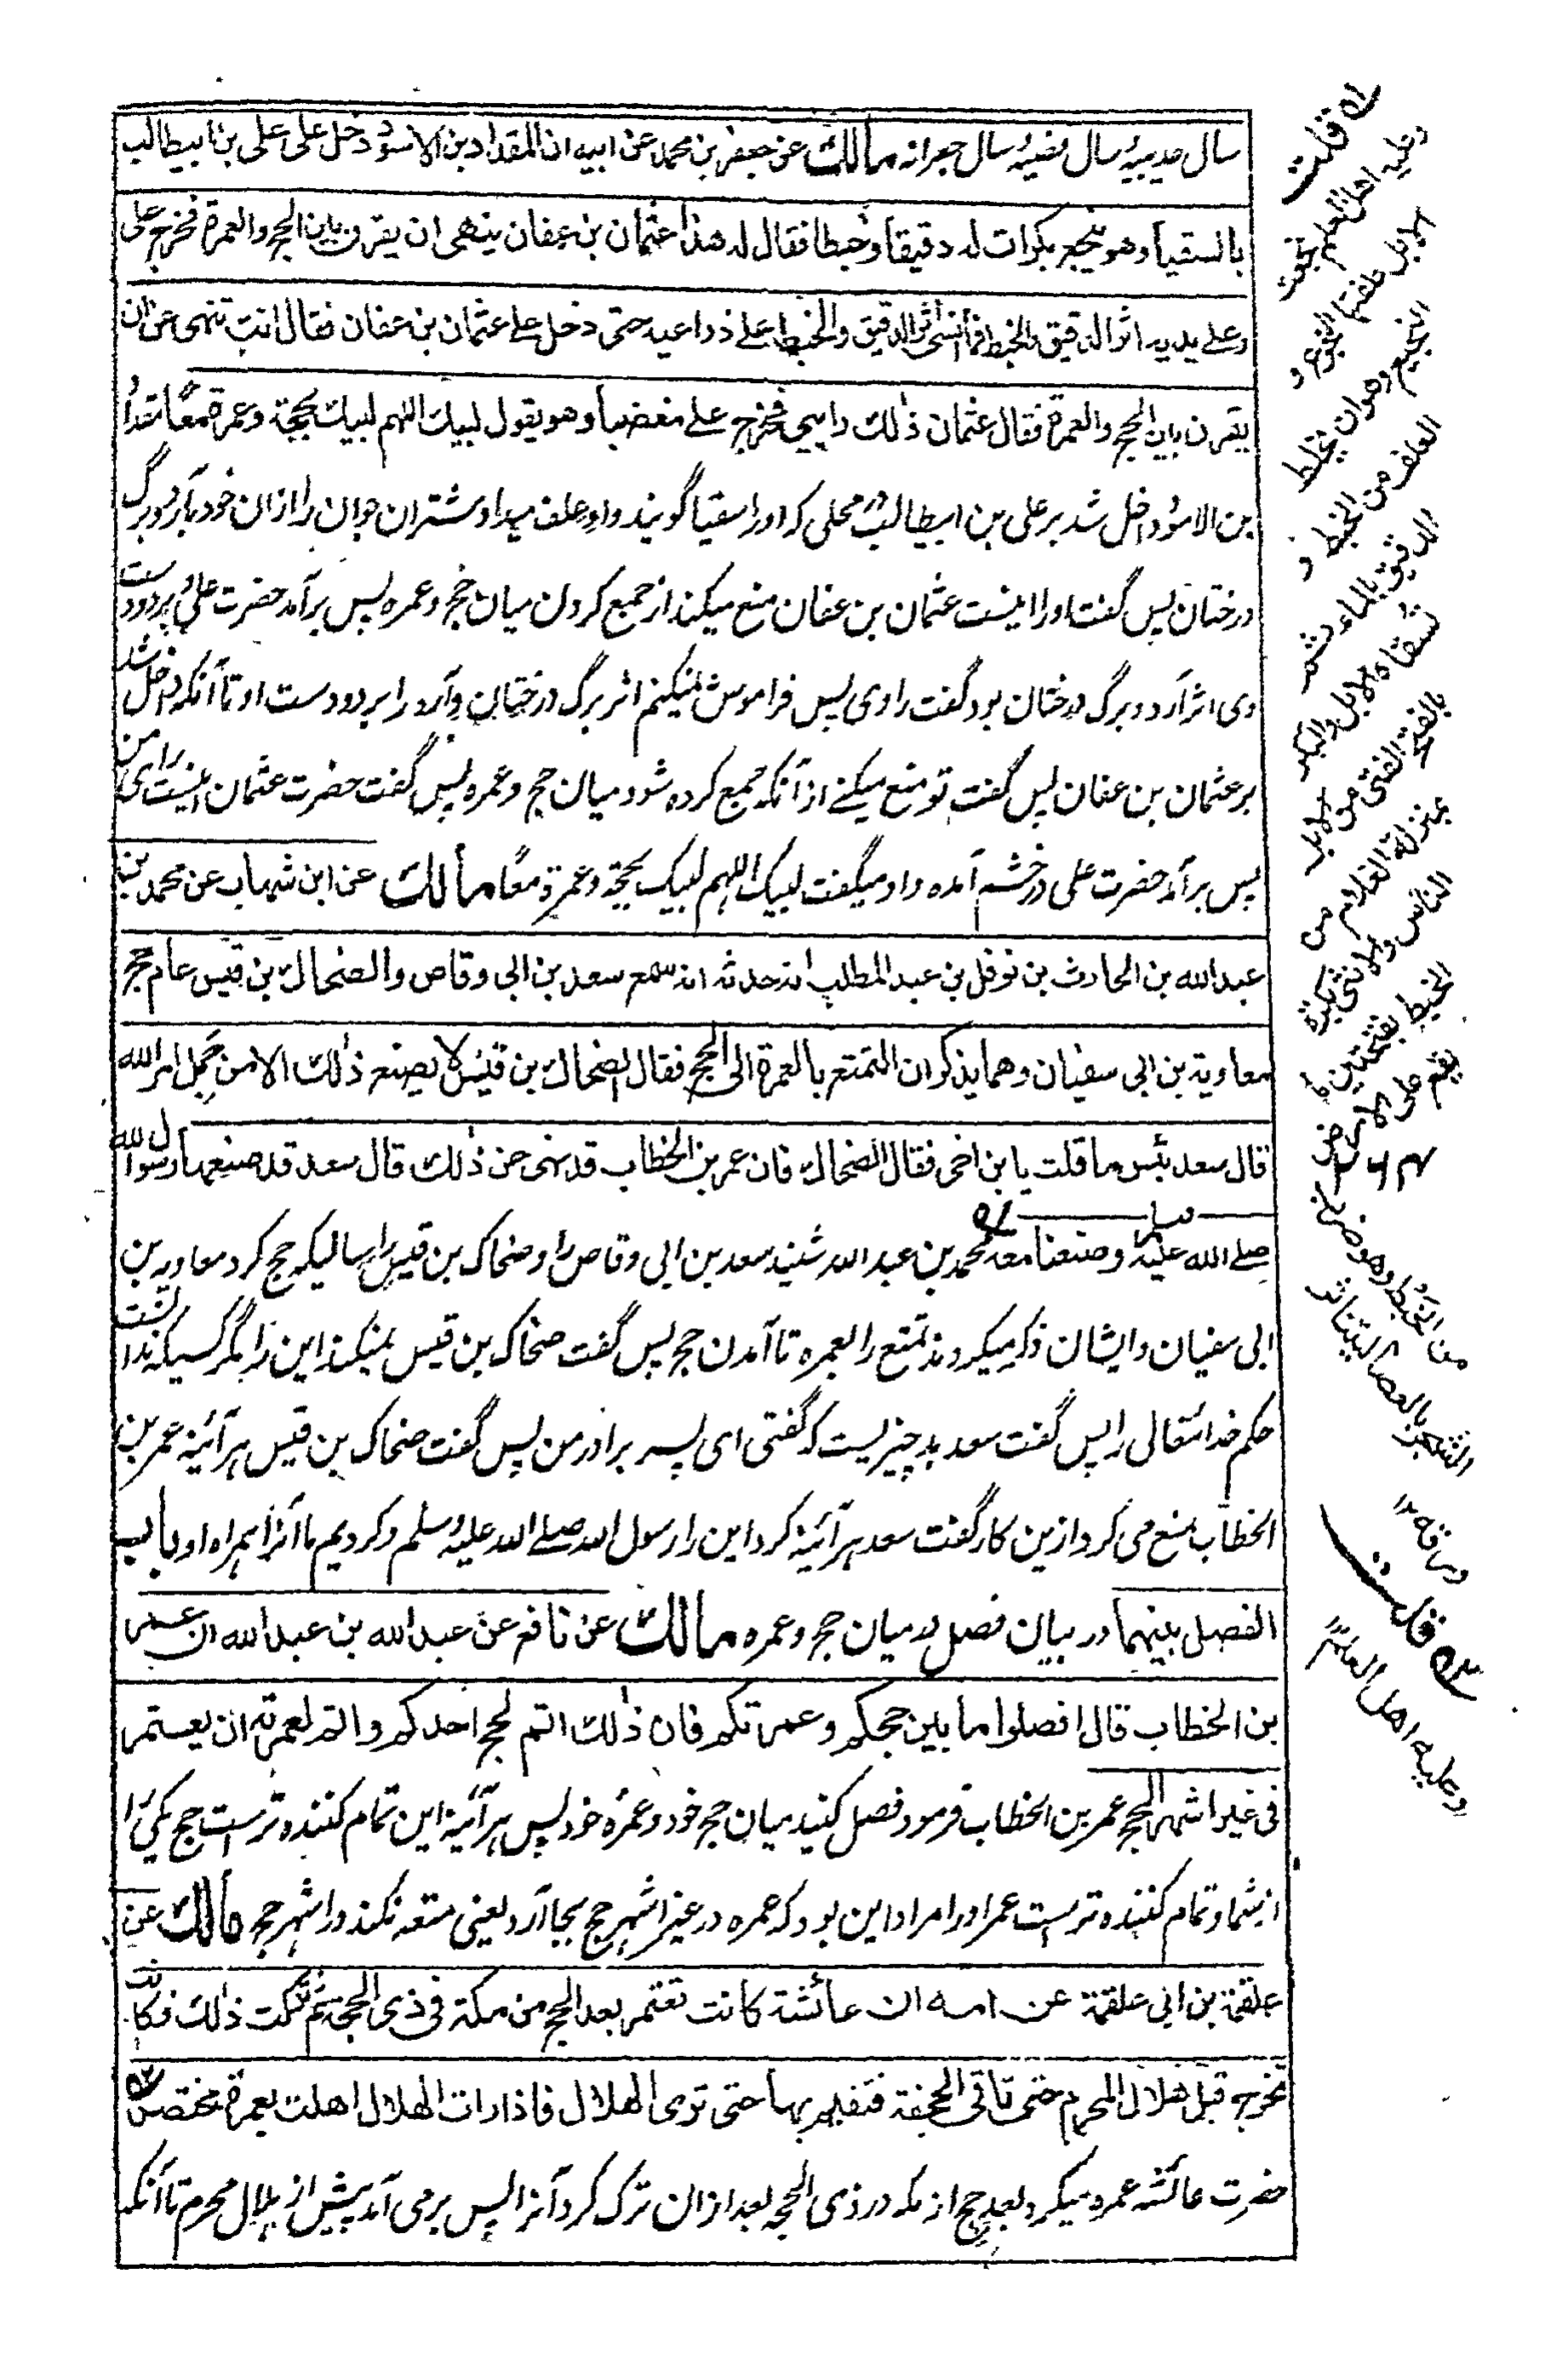 سال حدیبیه و سال قضیه و سال جعرانه مالك عن جعفر بن محمد عن ابیه ان المقداد بن الاسود دخل علی علی بن ابیطالب
بالسقیا وهو ینجع بکرات له دقیقا وخبطا فقال له هذا عثمان بن عفان ینهی ان یقرن بین الحج والعمرة فخرج علی
وعلی یدیه اثر الدقیق والخبط فما انسی اثر الدقیق والخبط علی ذراعیه حتی دخل علی عثمان بن عفان فقال انت تنهی عن ان
یقرن بین الحج والعمرة فقال عثمان ذلك رایی فخرج علی مغضبا وهو یقول لبیك اللهم لبیك بحجة وعمرة معا مقداد
بن الاسود داخل شد بر علی بن ابیطالب در محلی که او را سقیا گویند و او علف میداد شتران جوان را ازان خود بآرد و برگ
درختان پس گفت او را اینست عثمان بن عفان منع میکند از جمع کردن میان حج و عمره پس برآمد حضرت علی و بر دو دست
وی اثر آرد و برگ درختان بود گفت راوی پس فراموش نمیکنم اثر برگ درختان و آرد را بر دو دست او تا آنکه داخل شد
بر عثمان بن عفان پس گفت تو منع میکنی از آنکه جمع کرده شود میان حج و عمره پس گفت حضرت عثمان اینست رای من
پس برآمد حضرت علی در خشم آمده و او میگفت لبیک اللهم لبیک بحجة وعمرة معا مالك عن ابن شهاب عن محمد بن
عبدالله بن الحارث بن نوفل بن عبد المطلب انه حدثه انه سمع سعد بن ابی وقاص والضحاك بن قیس عام حج
معاویة بن ابی سفیان وهما یذکران التمتع بالعمرة الی الحج فقال الضحاك بن قیس لا یصنع ذلك الا من جهل امر الله
قال سعد بئس ما قلت یا بن اخی فقال الضحاك فان عمر بن الخطاب قد نهی عن ذلك قال سعد قد صنعها رسول الله
صلی الله علیه وسلم وصنعنا معه محمد بن عبد الله شنید سعد بن ابی وقاص را و ضحاک بن قیس را سالیکه حج کرد معاویه بن
ابی سفیان و ایشان ذکر میکردند تمتع را بعمره تا آمدن حج پس گفت ضحاک بن قیس نمیکند این را مگر کسیکه ندانست
حکم خدا تعالی را پس گفت سعد بد چیزیست که گفتی ای پسر برادر من پس گفت ضحاک بن قیس هر آئینه عمر بن
الخطاب منع می کرد ازین کار گفت سعد هر آئینه کرد این را رسول الله صلی الله علیه وسلم و کردیم ما آنرا همراه او باب
الفصل بینهما در بیان فصل در میان حج و عمره مالك عن نافع عن عبد الله بن عبد الله ان عمر
بن الخطاب قال افصلوا ما بین حجکم وعمرتکم فان ذلك اتم لحج احدکم واتم لعمرته ان یعتمر
فی غیر اشهر الحج عمر بن الخطاب فرمود فصل کنید میان حج خود و عمرۀ خود پس هر آئینه این تمام کننده ترست حج یکی را
از شما و تمام کننده ترست عمرا و را مراد این بود که عمره در غیر اشهر حج بجا آرد یعنی متعه نکند در اشهر حج مالك عن
علقمة بن ابی علقمة عن امه ان عائشة کانت تعتمر بعد الحج من مکة فی ذی الحجة ثم ترکت ذلك فکانت
تخرج قبل هلال المحرم حتی تاتی الجحفة فتقیم بها حتی تری الهلال فاذا رات الهلال اهلت بعمرة مختصر
حضرت عائشه عمره میکرد بعد حج از مکه در ذی الحجه بعد ازان ترک کرد آنرا پس برمی آمد پیش از هلال محرم تا آنکه
قلت
وعلیه اهل العلم
النجیع وهو ان یخلط
العلف من الخبط و
الدقیق بالماء ثم
تسقاه الابل والبکر
بالفتح الفتی من الابل
بمنزلة الغلام من
الناس والانثی بکرة
الخبط بفتحتین
الشجر بالعصا لیتناثر
ورقه
قلت
وعلیه اهل العلم